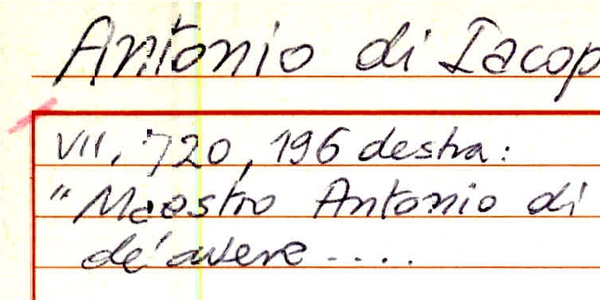 Antonio di Iacop
VII, 720, 196 destra:
"Maestro Antonio di
de' avere ....